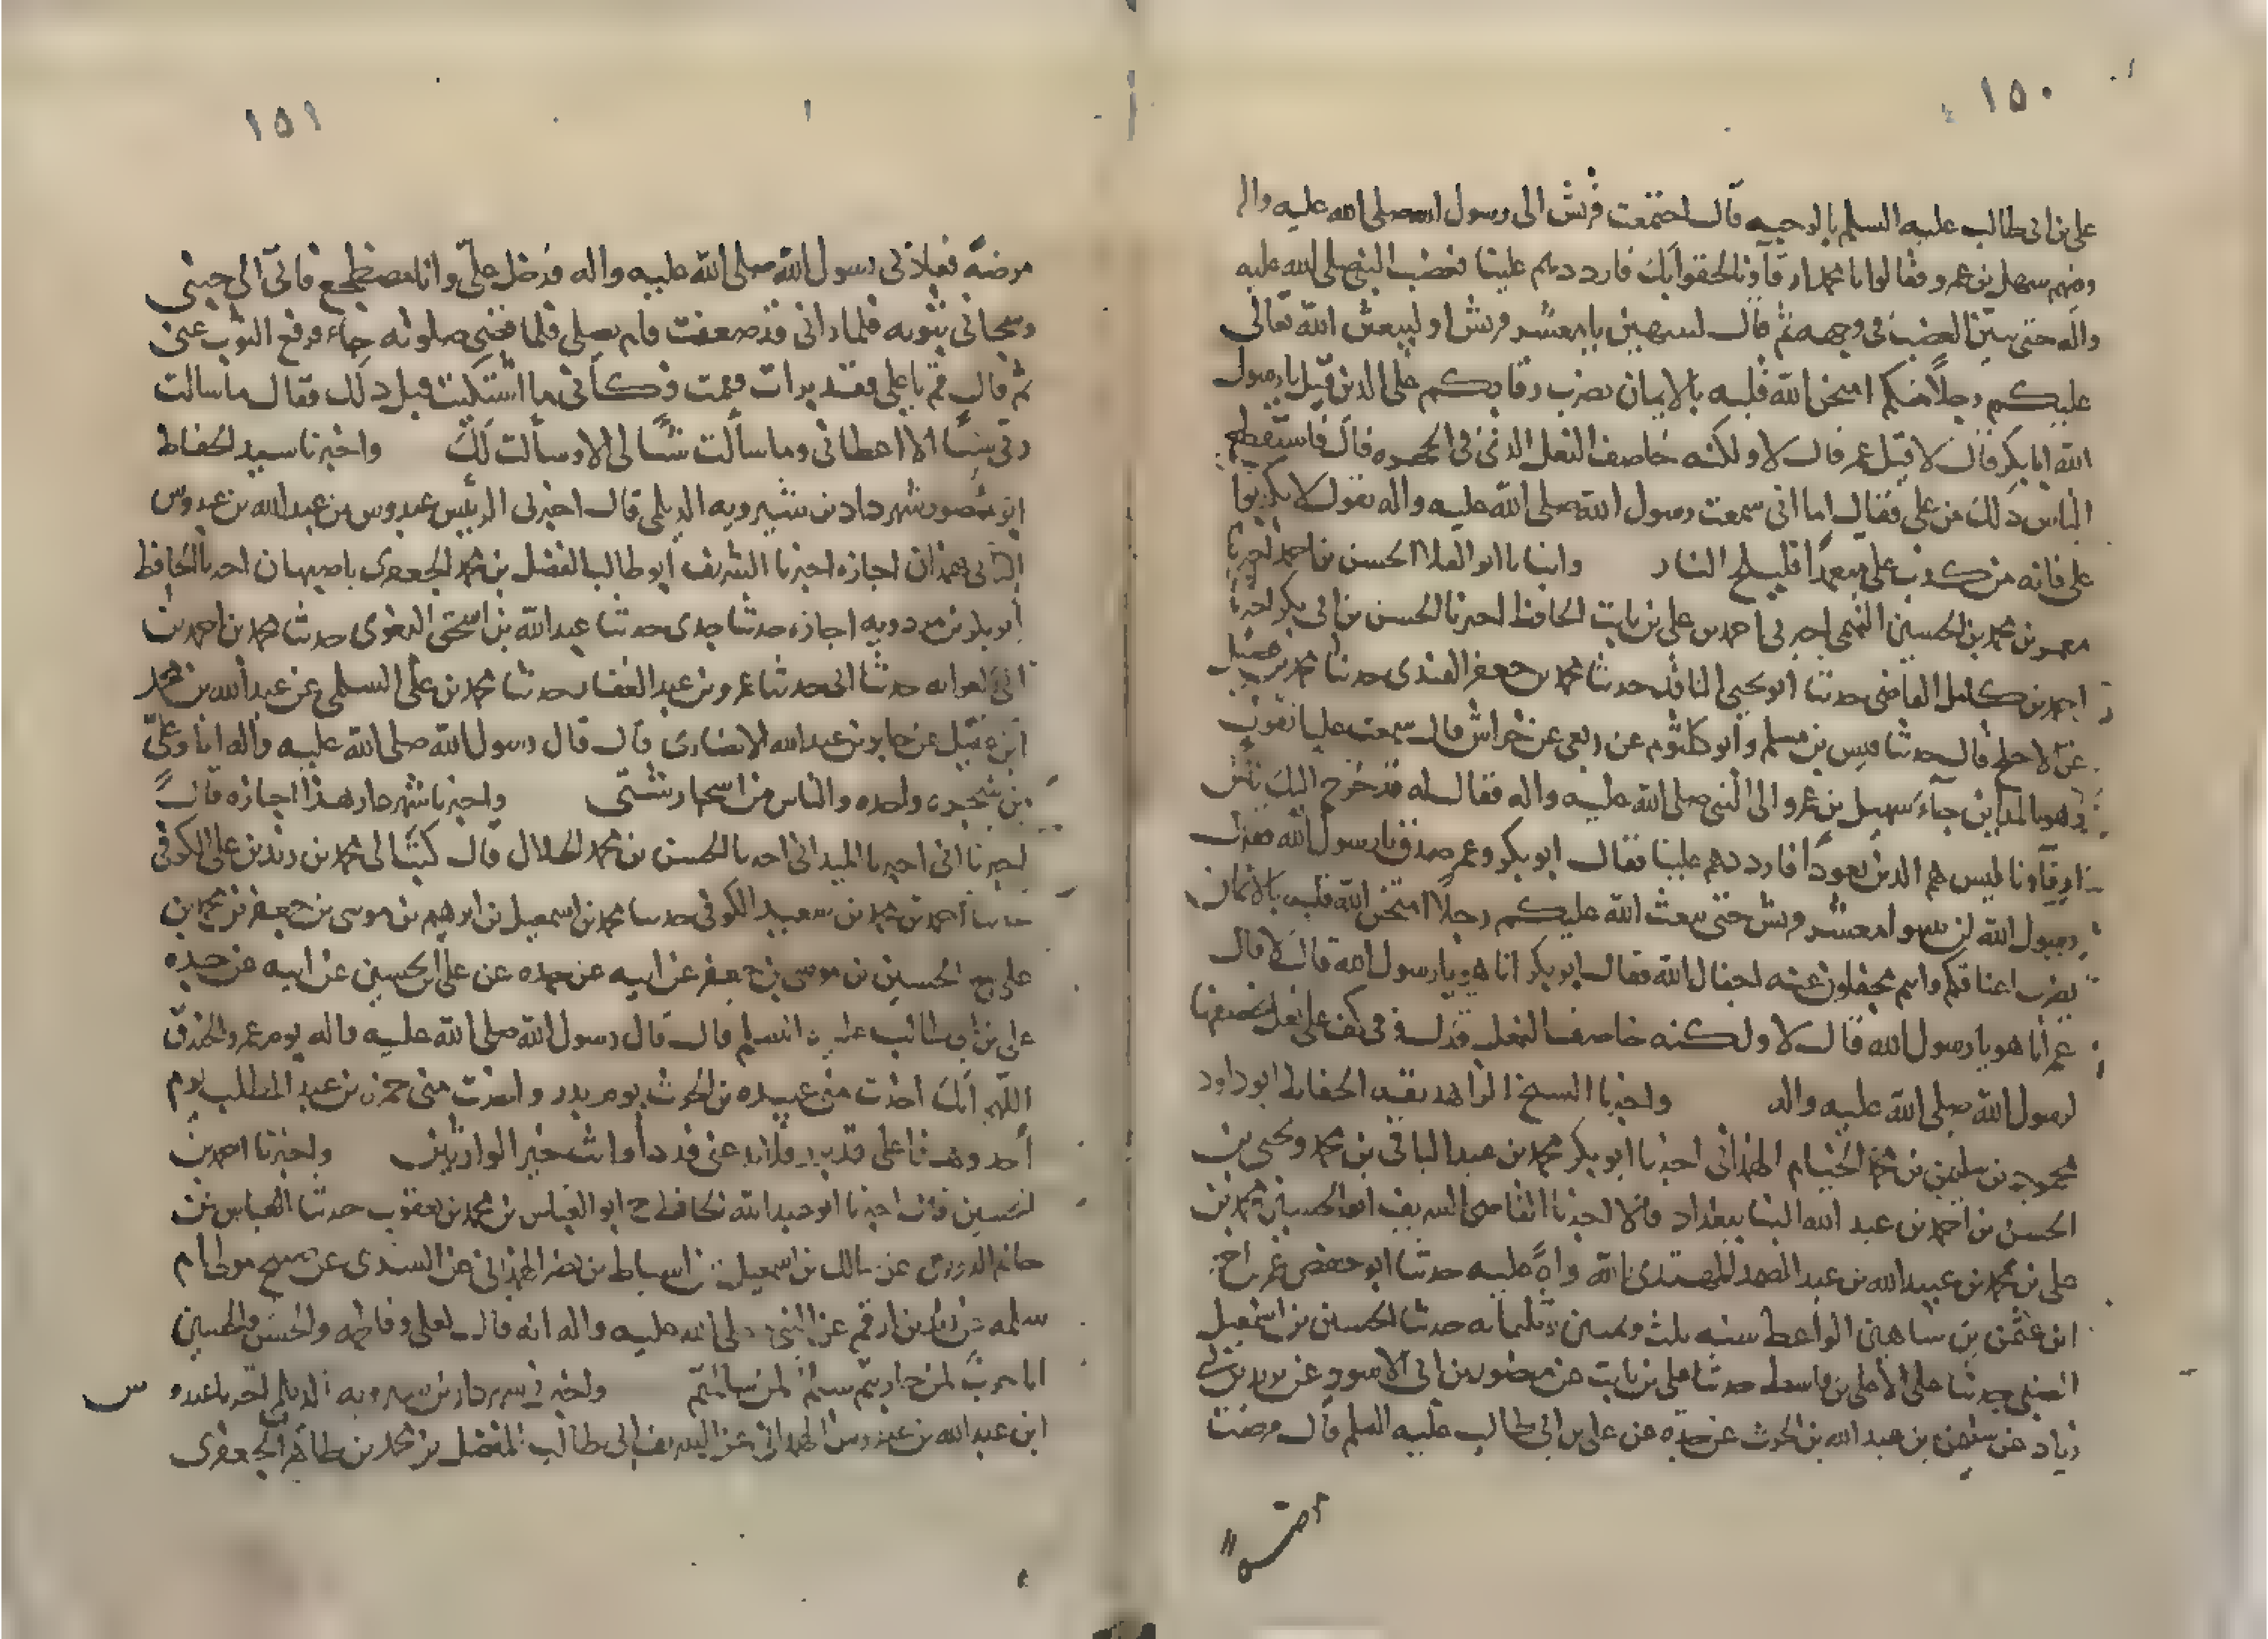 ١٥٠
على بن ابى طالب عليه السلم بالرحبيه قال اجتمعت قريش الى رسول الله صلى الله عليه واله
ومنهم سهيل بن عمرو فقالوا يا محمد ارقاونا لحقوا بك فارددهم علينا فغضب النبي صلى الله عليه
واله حتى تبين الغضب فى وجهه ثم قال لتنتهين يا معشر قريش او ليبعثن الله تعالى
عليكم رجلا منكم امتحن الله قلبه بالايمان يضرب رقابكم على الدين قيل يا رسول
الله ابا بكر قال لا قيل عمر قال لا ولكنه خاصف النعل الذى فى الحجره قال فاستفظع
الناس ذلك من على فقال اما انى سمعت رسول الله صلى الله عليه واله يقول لا تكذبوا
على فانه من كذب على متعمدا فليلج النار وانبانا ابو العلا الحسن بن احمد اخبرنا
معمر بن محمد بن الحسين التميمى اخبرنى احمد بن على بن ثابت الحافظ اخبرنا الحسن بن ابى بكر اخبرنا
احمد بن كامل القاضى حدثنا ابو يحيى الناقد حدثنا محمد بن جعفر الفندى حدثنا محمد بن فضيل
عن الاجلح قال حدثنا قيس بن مسلم وابو كلثوم عن ربعى عن خراش قال سمعت عليا يقول
وهو بالمداين جآء سهيل بن عمرو الى النبى صلى الله عليه واله فقال له قد خرج اليك ناس
من ارقآونا ليس هم الدين تعوذا فارددهم علينا فقال ابو بكر وعمر صدق يا رسول الله فقال
رسول الله لن تنتهوا معشر قريش حتى يبعث الله عليكم رجلا امتحن الله قلبه بالايمان
يضرب اعناقكم وانتم مجفلون عنه اجفال الله فقال ابو بكر انا هو يا رسول الله قال لا قال
عمر انا هو يا رسول الله قال لا ولكنه خاصف النعل قال وفى كف على نعل يخصفها
لرسول الله صلى الله عليه واله واخبرنا الشيخ الزاهد بقيه الحفاظ ابو داود
محمود بن سليمن بن محمد الخيام الهمذانى اخبرنا ابو بكر محمد بن عبد الباقى بن محمد ويحيى بن
الحسن بن احمد بن عبد الله البنا ببغداد قالا اخبرنا القاضى الشريف ابو الحسين محمد بن
على بن محمد بن عبيد الله بن عبد الصمد المهتدى بالله قراة عليه حدثنا ابو حفص عمر بن احمد
ابن عثمن بن شاهين الواعظ سنه ثلث وثمنين وثلثمائه حدثنا الحسين بن اسمعيل
الضبى حدثنا عبد الاعلى بن واصل حدثنا على بن ثابت عن منصور بن ابى الاسود عن يزيد بن ابى
زياد عن سليمن بن عبد الله بن الحرث عن جده عن على بن ابى طالب عليه السلم قال مرضت
١٥١
مرضة فعادنى رسول الله صلى الله عليه واله فدخل على وانا مضطجع فاتى الى جنبى
وسجانى بثوبه فلما رانى قد ضعفت قام يصلى فلما قضى صلوته جاء فرفع الثوب عنى
ثم قال قم يا على فقد برات فقمت وكأنى ما اشتكيت قبل ذلك فقال ما سالت
ربى شيئا الا اعطانى وما سألت شيئا لى الا وسألت لك واخبرنا سيد الحفاظ
ابو منصور شهردار بن شيرويه الديلمى قال اخبرنى الرئيس عبدوس بن عبد الله بن عبدوس
التانى بهمذان اجازه اخبرنا الشريف ابو طالب الفضل بن محمد الجعفرى باصبهان اخبرنا الحافظ
ابو بكر بن مردويه اجازه حدثنا جدى حدثنا عبد الله بن اسحق البغوى حدثنا محمد بن احمد بن
ابى العوام حدثنا ابى حدثنا عمرو بن عبد الغفار حدثنا محمد بن على السلمى عن عبد الله بن محمد
ابن عقيل عن جابر بن عبد الله الانصارى قال قال رسول الله صلى الله عليه واله انا وعلى
من شجره واحده والناس من اشجار شتى واخبرنا شهردار هذا اجازه قال
اخبرنا ابى اخبرنا الميدانى اخبرنا الحسن بن محمد الخلال قال كتب الى محمد بن زيد بن على الكوفى
حدثنا احمد بن محمد بن سعيد الكوفى حدثنا محمد بن اسمعيل بن ابرهيم بن موسى بن جعفر بن محمد بن
على الحسين بن موسى بن جعفر عن ابيه عن جده عن على بن الحسين عن ابيه عن جده
على بن ابى طالب عليه السلم قال قال رسول الله صلى الله عليه واله يوم عمرو الخندق
اللهم انك اخذت منى عبيده بن الحرث يوم بدر واخذت منى حمزه بن عبد المطلب يوم
أحد وهذا على فلا تدعنى فردا وانت خير الوارثين واخبرنا احمد بن
الحسين قال اخبرنا ابو عبد الله الحافظ ابو العباس بن محمد بن يعقوب حدثنا العباس بن
حاتم الدورى عن مالك بن اسمعيل عن اسباط بن نصر الهمذانى عن السدى عن صبيح مولى ام
سلمه عن زيد بن ارقم عن النبى صلى الله عليه واله انه قال لعلى وفاطمه والحسن والحسين
انا حرب لمن حاربتم سلم لمن سالمتم واخبرنى شهردار بن شيرويه الديلمى اخبرنا عبدوس
ابن عبد الله بن عبدوس الهمدانى عن الشريف ابى طالب المفضل بن محمد بن طاهر الجعفرى